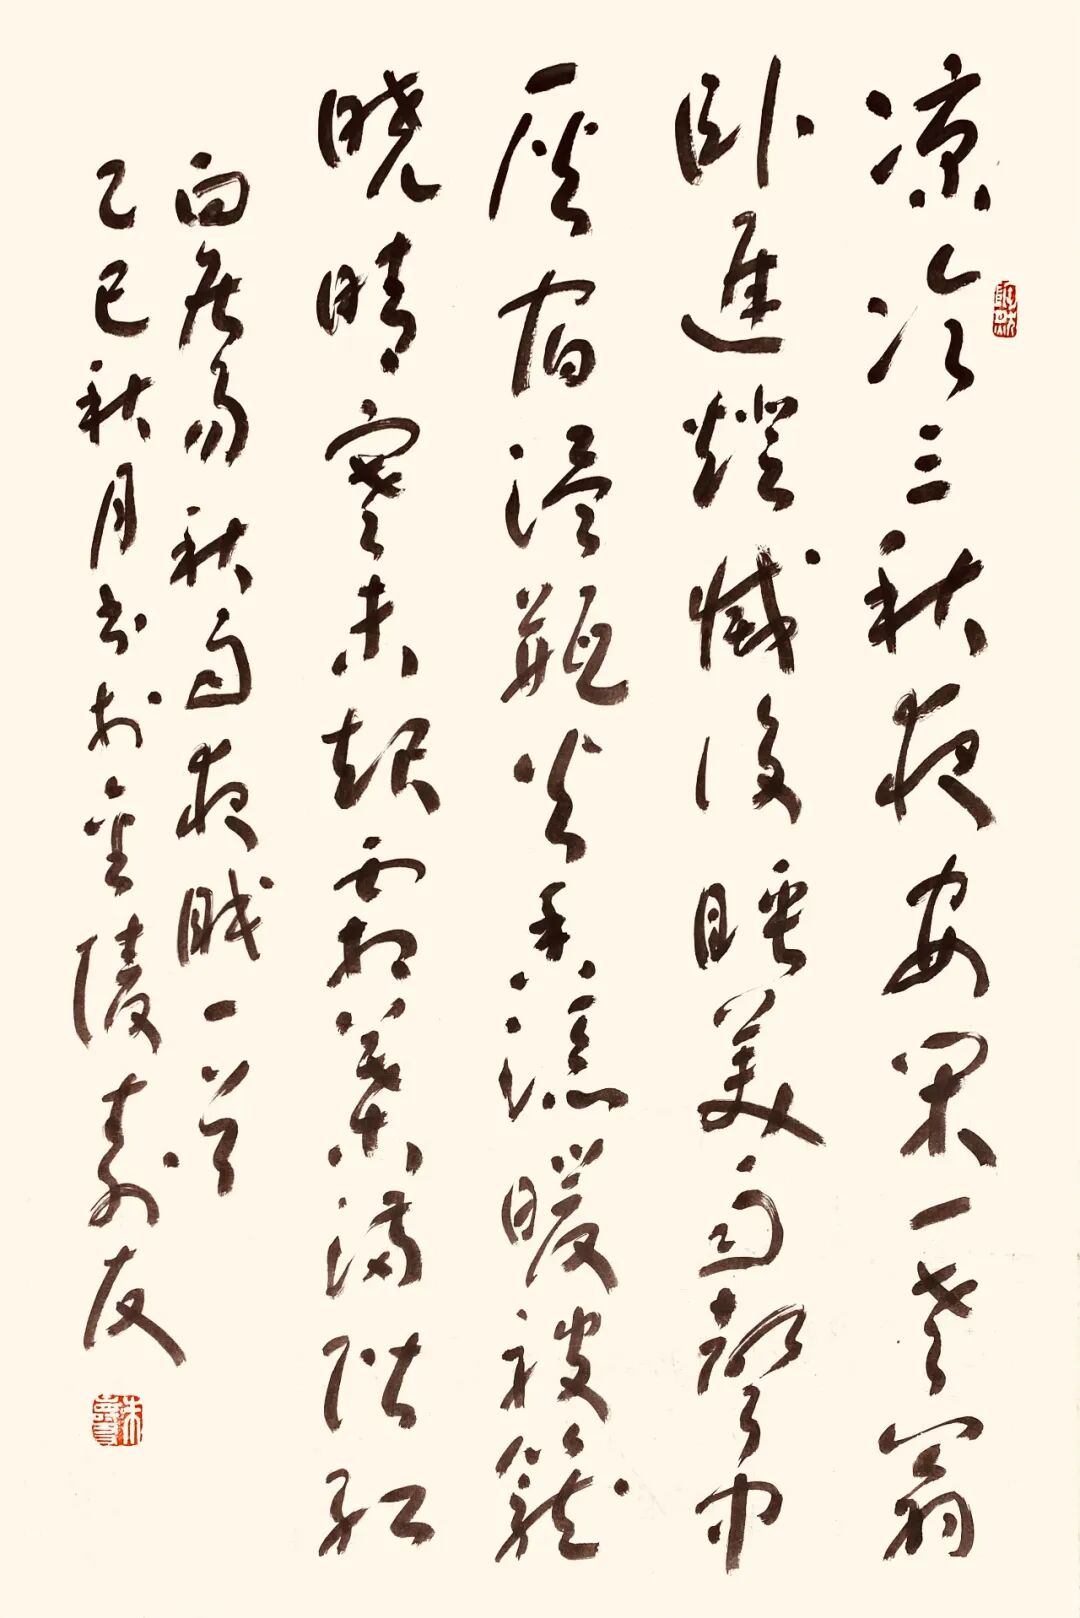 凉冷三秋夜安闲一老翁
卧迟灯灭后睡美雨声中
灰宿温瓶火香添暖被笼
晓晴寒未起霜叶满阶红
白居易秋雨夜眠一首
乙巳秋月书于金陵寿友